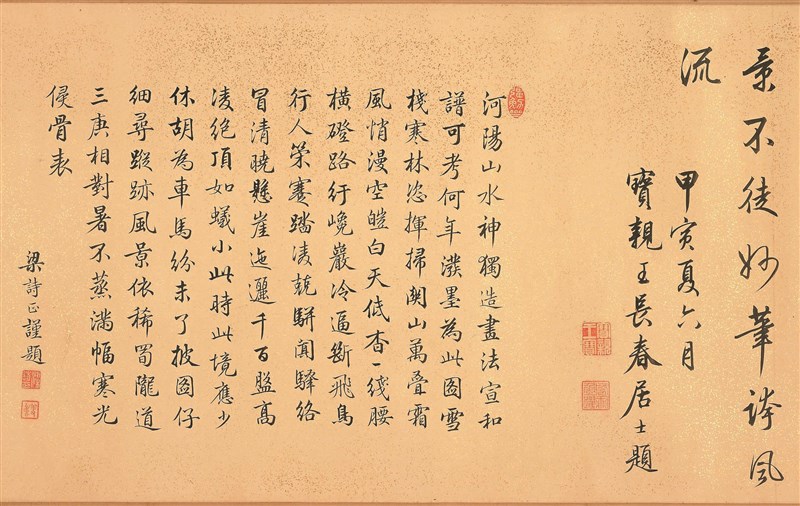 景不徒妙筆誇風
流
甲寅夏六月
寶親王長春居士題
河陽山水神獨造畫法宣和
譜可考何年潑墨為此圖雪
棧寒林恣揮掃關山萬疊霜
風悄漫空皚白天低杳一綫腰
橫磴路行巉巖冷逼斷飛鳥
行人策蹇踏淩兢駢闐驛絡
冒清曉懸崖迤邐千百盤高
淩絕頂如蟻小此時此境應少
休胡為車馬紛未了披圖仔
細尋蹤跡風景依稀蜀隴道
三庚相對暑不蒸滿幅寒光
侵骨表
梁詩正謹題